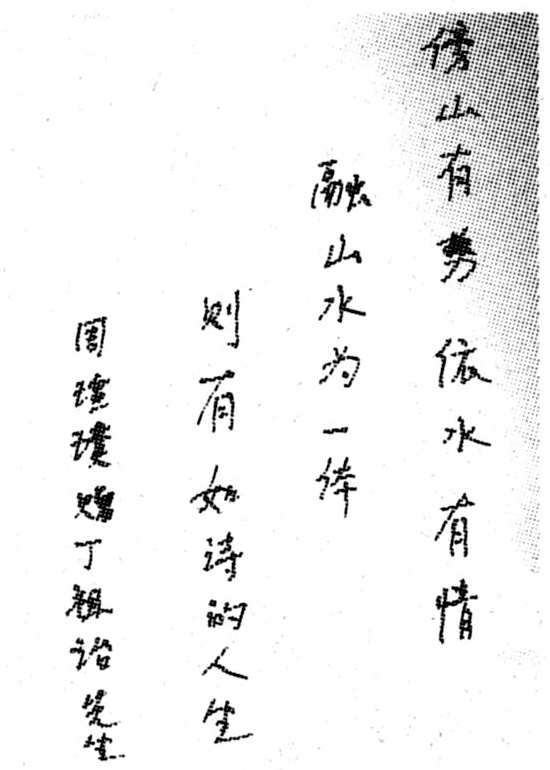 傍山有势 依水有情
融山水为一体
则有如诗的人生
周瑾璞赠丁祖诒先生